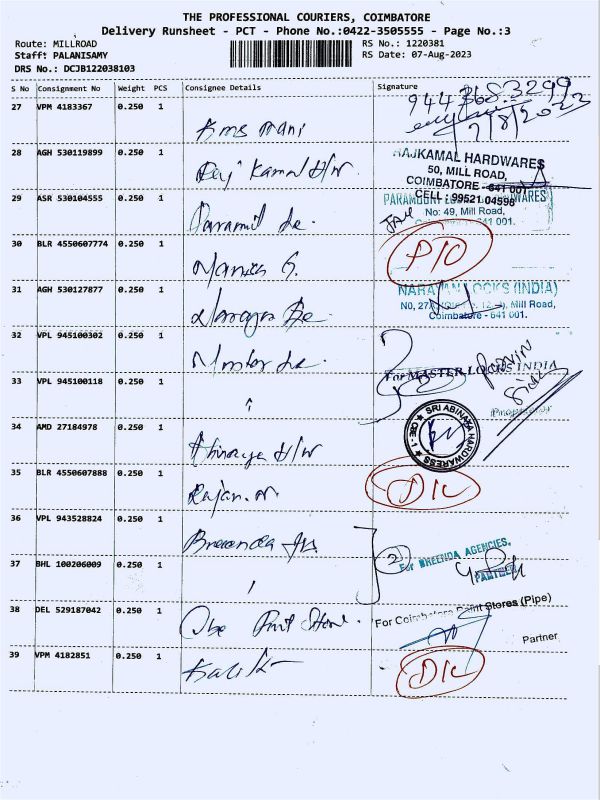 THE PROFESSIONAL COURIERS, COIMBATORE
Delivery Runsheet - PCT - Phone No.:0422-3505555 - Page No.:3
Route: MILLROAD
RS No.: 1220381
Staff: PALANISAMY
RS Date: 07-Aug-2023
DRS No.: DCJB122038103
S No Consignment No Weight PCS Consignee Details Signature
27 VPM 4183367 0.250 1
9443683299
7/8/2023
28 AGH 530119899 0.250 1 Raj Kamal H/W
RAJKAMAL HARDWARES
50, MILL ROAD,
COIMBATORE - 641 001
CELL : 99521 04598
29 ASR 530104555 0.250 1
PARAMOUNT
No: 49, Mill Road,
Coimbatore - 641 001.
30 BLR 4550607774 0.250 1
31 AGH 530127877 0.250 1
NARAYAN LOCKS (INDIA)
Mill Road,
Coimbatore - 641 001.
32 VPL 945100302 0.250 1
For MASTER LOCKS INDIA
Proprietor
33 VPL 945100118 0.250 1 "
34 AMD 27184978 0.250 1 Abinaya H/W
SRI ABINAYA HARDWARESS
CBE - 1
35 BLR 4550607888 0.250 1 Rajan. N.
36 VPL 943528824 0.250 1
2
For BREENDA AGENCIES,
PARTNER
37 BHL 100206009 0.250 1
38 DEL 529187042 0.250 1 Cbe Paint Store.
For Coimbatore Paint Stores (Pipe)
Partner
39 VPM 4182851 0.250 1